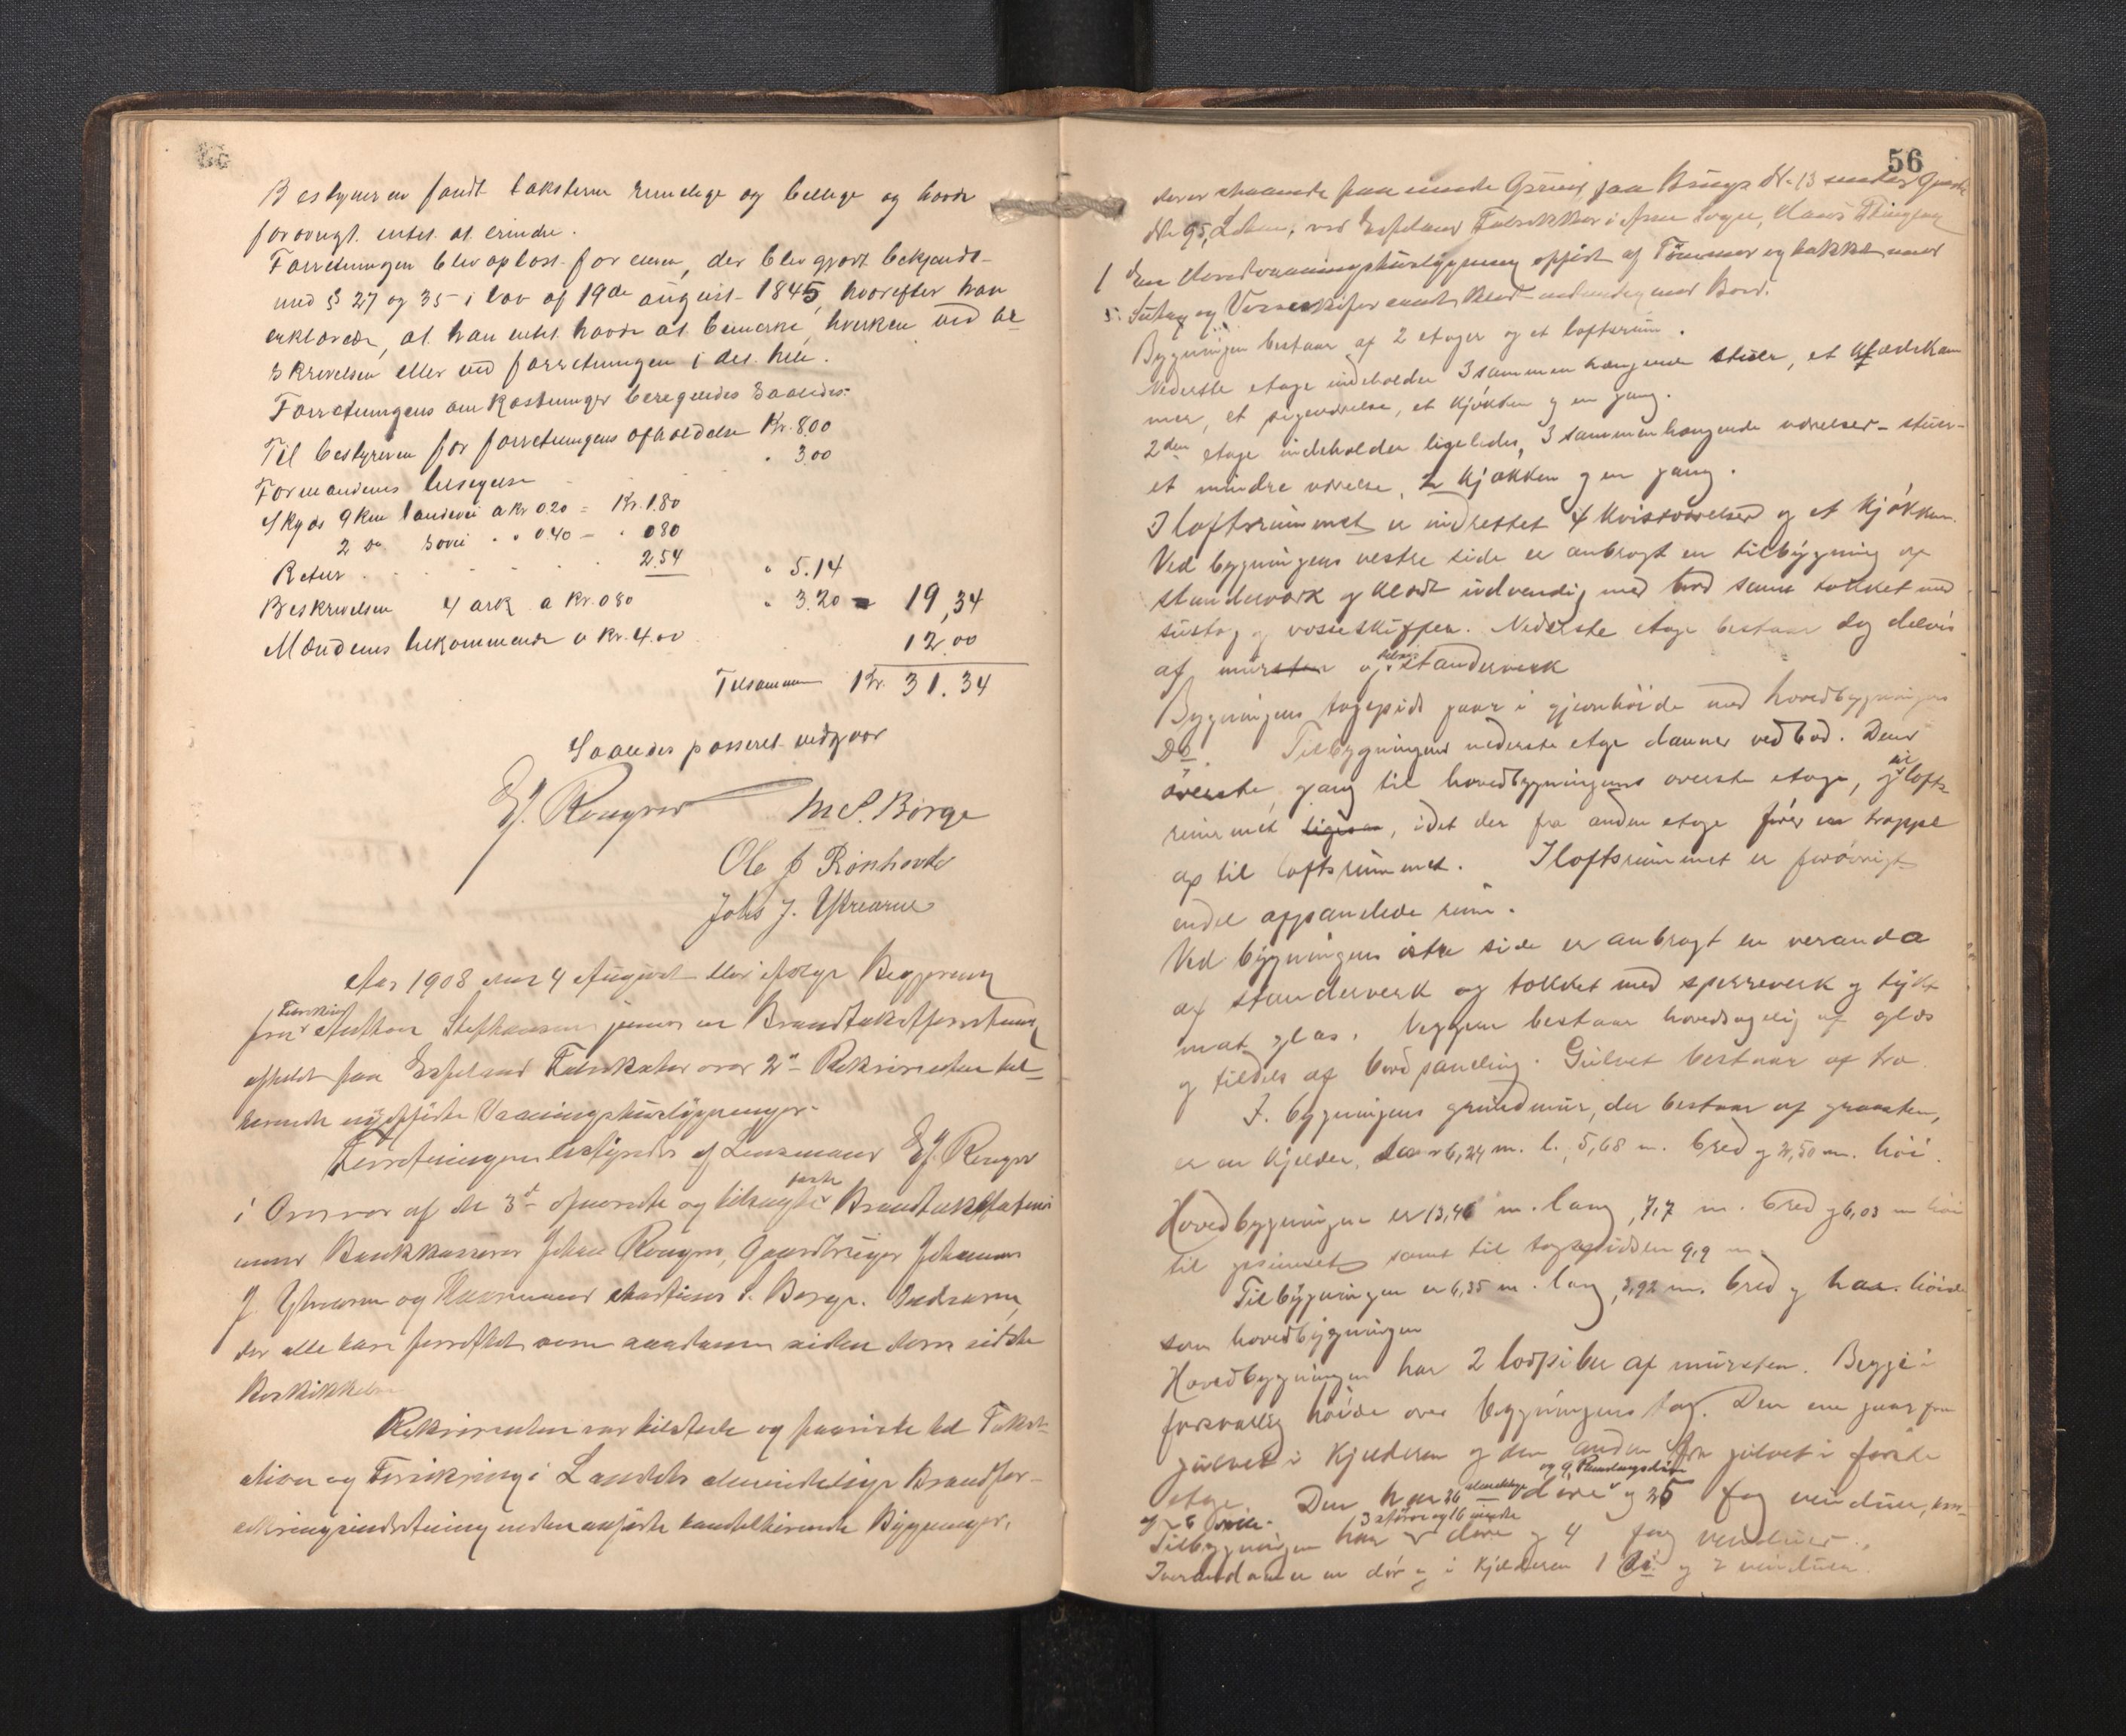 Bestyreren fandt taksterne rimelige og billige og havde
forøvrigt intet at erindre.
Forretningen blev oplæst for eieren, der blev gjort bekjendt
med § 27 og 35 i lov af 19de august 1845, hvorefter han
erklærede, at han intet havde at bemerke, hverken ved be
skrivelsen eller ved forretningen i det hele.
Forretningens omkostninger beregnedes saaledes:
Til bestyreren for forretningens afholdelse Kr. 8.00
Formandens tilsigelse " 3.00
Skyds 9 Km landevei a Kr 0.20 = Kr. 1.80
2 do søvei " " 0.40 - " 0.80
Retur 2.54 " 5.14
Beskrivelsen 4 ark a Kr. 0.80 " 3.20 = 19,34
Mændenes tilkommende a Kr. 4.00 12.00
Tilsammen Kr. 31.34
Saaledes passeret vedgaar
M S. Børge
Ole J Rønhovde
Johs J. Ytrearne
Aar 1908 den 4 August blev ifølge Begjæring
fra Fabrikeier Anthon Stephansen junior en Brandtakstforretning
afholdt paa Espeland Fabrikker over Rekvirenten til-
hørende nyopførte Vaaningshusbygninger.
Forretningen bestyredes af Lensmand
i Overvær af de 3de opnævnte og tilsagte faste Brandtakstations
mænd Bankkasserer Johan, Gaardbruger Johannes
J. Ytrearne og Martinus S. Børge. Indrearne,
der alle have forrettet som saadanne siden deres sidste
Beskikkelse
Rekvirenten var tilstede og paaviste til Takst-
ation og Forsikring i Landets almindelige Brandfor-
sikringsindretning nedenanførte ham tilhørende Bygninger,
56
der er staaende paa Grund, paa Brugs No. 13 under Gaards
No 95, ved Espeland Fabrikker i Sogn,
1 En Hovedvaaningshusbygning opført af Tømmer og takket med
Sutag og Vosseskifer samt klædt udvendig med Bord.
Bygningen bestaar af 2 etager og et loftsrum.
Nederste etage indeholder 3 sammenhængende stuer, et
mer, et pigeværelse, et kjøkken og en gang.
2den etage indeholder ligeledes 3 sammenhængende værelser - stuer -
et mindre værelse, 1 kjøkken og en gang.
I loftsrummet er indrettet 4 kvistværelser og et kjøkken.
Ved bygningens vestre side er anbragt en tilbygning af
standerværk og klædt udvendig med bord samt takket med
sutag og vosseskiffer. Nederste etage bestaar dog delvis
af mursten og delvis standerverk
Bygningens tagspids gaar i gjævnhøide med hovedbygningens
Do. Tilbygningens nederste etage danner vedbod. Dens
øverste, gang til hovedbygningens øverste etage, og til lofts
rummet ligesaa, idet der fra anden etage fører en trappe
op til loftsrummet. I loftsrummet er forøvrigt
endel afpanelede rum.
Ved bygningens østre side er anbragt en veranda
af standerverk og takket med sperreverk og tykt
mat glas. Veggene bestaar hovedsagelig af glas
og tildels af bordpaneling. Gulvet bestaar af træ.
I bygningens grundmur, der bestaar af graasten,
er en kjelder, der er 6,24 m. l., 5,68 m. bred og 2,50 m. høi.
Hovedbygningen er 13,46 m. lang, 7,7 m. bred og 6,03 m høi
til gesimset samt til tagspidsen 9,9 m.
Tilbygningen er 6,35 m. lang, 3,92 m. bred og har høide
som hovedbygningen
Hovedbygningen har 2 lodpiber af mursten. Begge i
forsvarlig høide over bygningens tag. Den ene gaar fra
gulvet i kjelderen og den anden fra gulvet i første
etage. Den har 26 døre og 25 fag vinduer,
Tilbygningen har døre og 4 fag vinduer.
I verandaen er en dør og i kjelderen 1 dør og 2 vinduer.